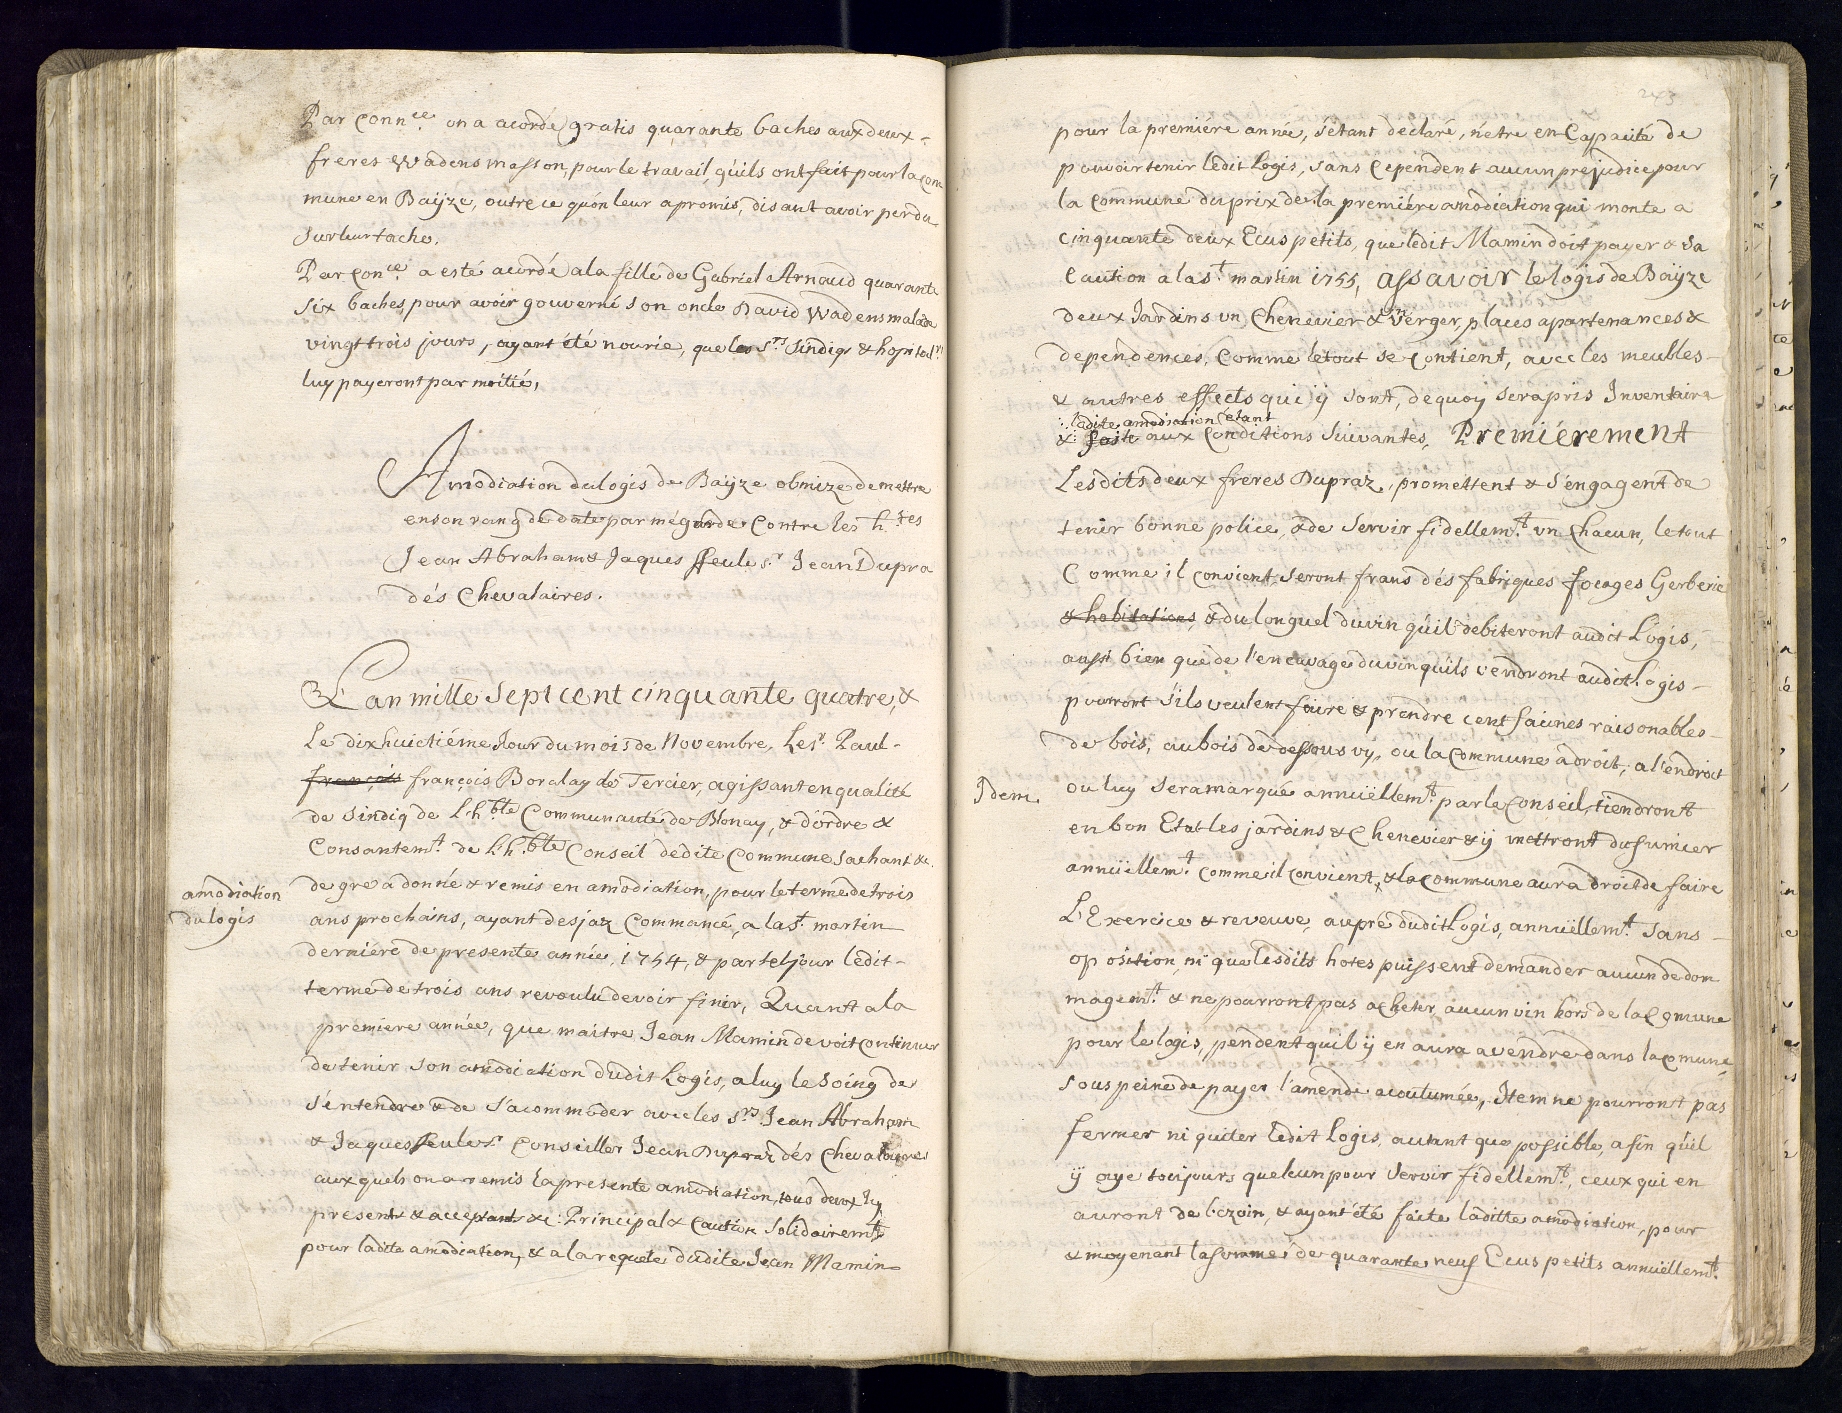 Par Conn.ce on a acordé gratis quarante baches aux deux
freres Wadens masson, pour le travail, qu'ils ont fait pour la com
mune en Baÿze, outre ce qu'on leur a promis, disant avoir perdu
sur leur tache.
Par Con.ce a esté acordé a la fille de Gabriel Arnaud quarante
six baches, pour avoir gouverné son oncle David Wadens malade
vingt trois jours, ayant été nourie, que les S.rs Sindiqs & hopital.r
luy payeront par moitié,
Amodiation du logis de Baÿze obmize de mettre
en son rang de date par mégarde Contre les h.tes
Jean Abraham & Jaques ffeu le s.r Jean Dupra
dés Chevalaires.
L'an mille sept cent cinquante quatre, &
Le dixhuictiéme Jour du mois de Novembre, Le s.r Paul-
françois françois Boralay de Tercier, agissant en qualité
de Sindiq de L'h.ble Communauté de Blonay, & d'ordre &
Consantem.t de L'h.ble Conseil dédite Commune sachant &c.
amodiation
du logis
de gre a donné & remis en amodiation, pour le terme de trois
ans prochains, ayant desjaz Commancé, a la s.t martin
derniére de presente année, 1754, & par tel jour ledit-
terme de trois ans revoulu devoir finir, Quant a la
premiere année, que maitre Jean Mamin devoit continuer
de tenir son amodiation dudit Logis, a luy le soing de
s'entendre & de s'acommoder avec les S.rs Jean Abraham
& Jaques ffeu le s.r Conseiller Jean Dupraz dés Chevalaires
aux quels on a remis la presente amodiation, tous deux Icy
present & acceptant &c: Principal & Caution solidairem.t
pour ladite amodiation, & a la requete dudite Jean Mamin
243
pour la premiére année, s'étant déclaré, n'etre en Capacité de
pouvoir tenir ledit Logis, sans Cependent aucun prejudice pour
la Commune du prix de la premiére amodiation qui monte a
cinquante deux Ecus petits, que ledit Mamin doit payer & sa
Caution a la s.t martin 1755, assavoir le logis de Baÿze
deux Jardins un Chenevier & un verger, places apartenances &
dependences, Comme le tout se Contient, avec les meubles-
& autres effects qui ÿ sont, de quoy sera pris Inventaire
ladite amodiation étant
& faite aux Conditions suivantes, Premiérement
Lesdits deux fréres Dupraz, promettent & s'engagent de
tenir bonne police, & de servir fidellem.t un Chacun, le tout
Comme il convient seront francs dés fabriques focages Gerberie
& habitations, & du longuel du vin qu'il debiteront audit Logis,
aussi bien que de l'encuvage du vin qu'ils vendront audit Logis-
pourront s'ils veulent faire & prendre cent faünes raisonables-
de bois, au bois de dessous vÿ, ou la Commune a droit, a l'endroit
Idem.
ou luy sera marqué annüellem.t par le Conseil, tiendront
en bon Etat les jardins & Chenevier & ÿ mettront du fumier
annüellem.t Comme il convient, & la Commune aura droit de faire
L'Exercice & reveuve, aupré dudit Logis, annüellem.t sans-
oposition, ni que lesdits hotes puissent demander aucun dedom
magem.t & ne pourront pas acheter aucun vin hors de la Comune
pour le logis, pendent qu'il ÿ en aura a vendre dans la comune
sous peine de payer l'amende acoutumée, Item ne pourront pas
fermer ni quiter ledit Logis, autant que possible, afin qu'il
ÿ aye toujours quelcun pour servir fidéllem.t, ceux qui en
auront de bezoin, & ayant été faite laditte amodiation, pour
& moyenant la somme de quarante neuf Ecus petits annüellem.t